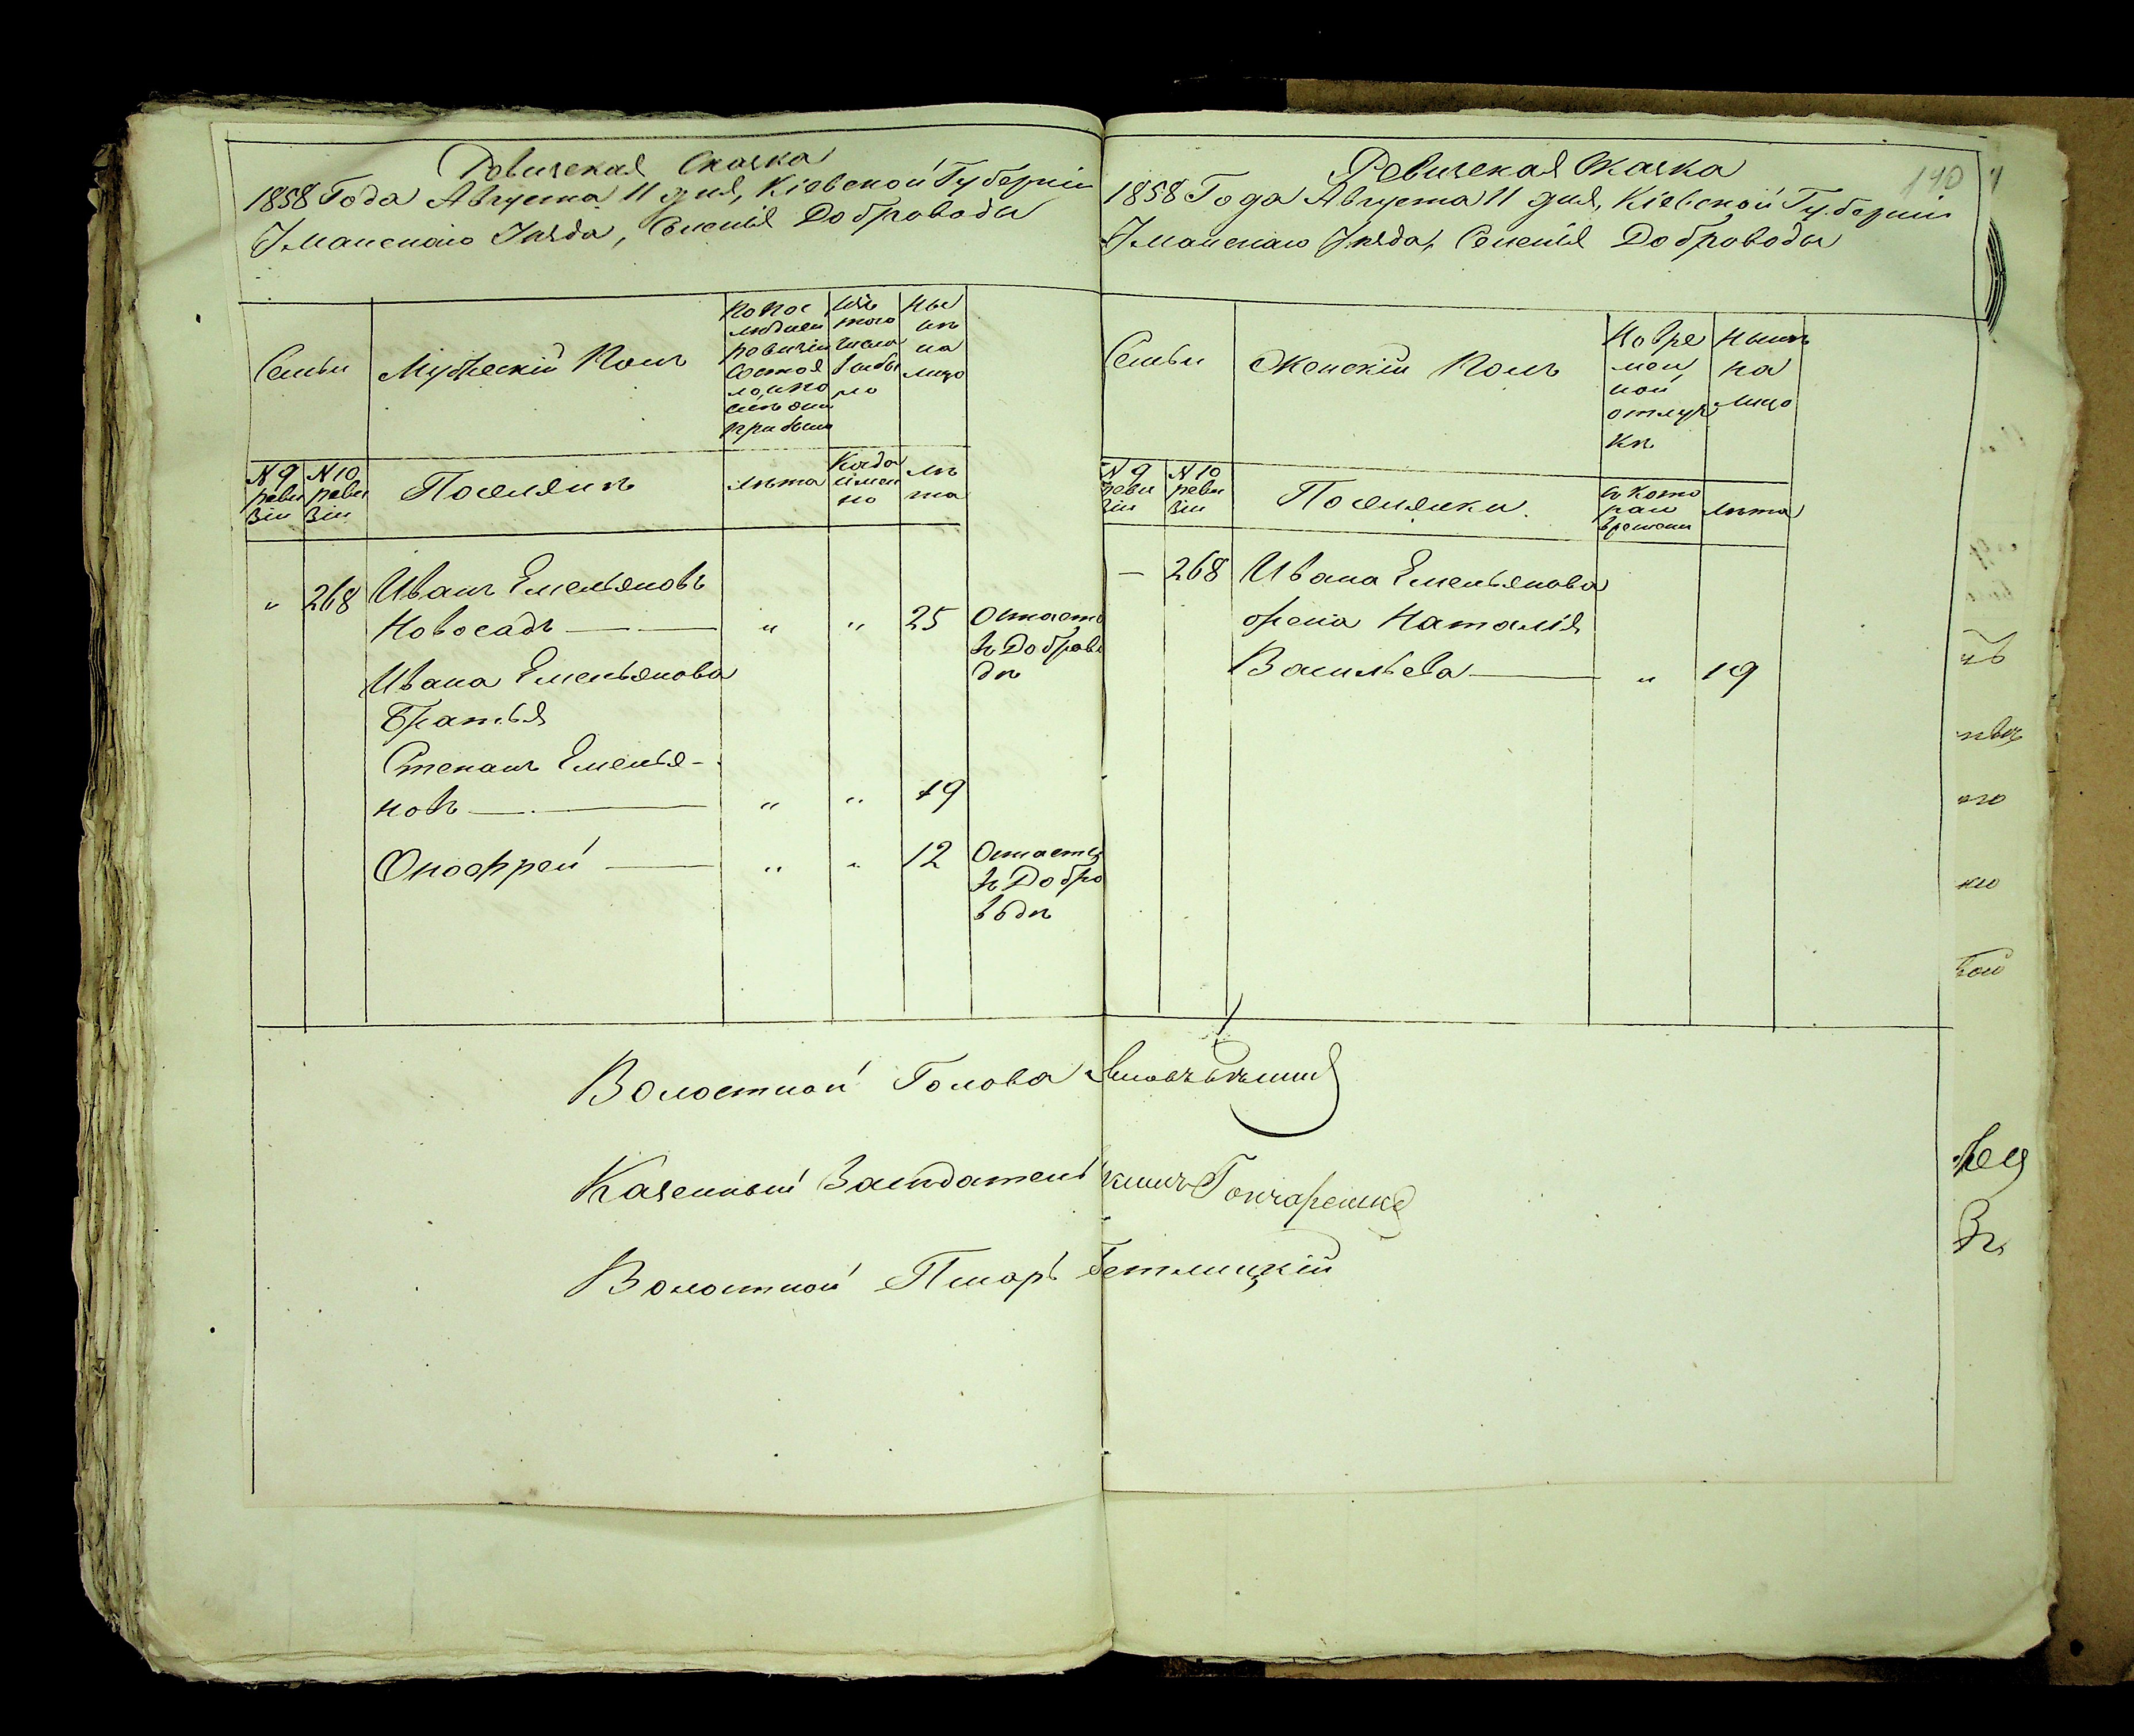 Ревизская Сказка
1858 Года Августа 11 дня, Кіевской Губерніи
Уманскаго Уезда, Селенія Доброводы
Семьи
Мужескій Полъ
По пос
ледней
ревизіи
состоя
ло, и по
слѣ она
прибыло
Изъ
того
числа
выбы
ло
Ны
нѣ
на
лицо
№ 9
реви
зіи
№ 10
реви
зіи
Поселянъ
лѣта
Когда
имен
но
лѣ
та
" 268 Иванъ Емельяновъ
Новосадъ — " " 25
Остаетс
въ Доброво
дѣ
Ивана Емельянова
братья
Степанъ Емелья-
новъ — " " 19
Онофрей — " " 12
Остается
въ Добро
водѣ
Ревизская Сказка
140
1858 Года Августа 11 дня, Кіевской Губерніи
Уманскаго Уезда, Селенія Доброводы
Семьи
Женскій Полъ
Во вре
мен
ной
отлуч
кѣ
Нынѣ
на
лицо
№ 9
реви
зіи
№ 10
реви
зіи
Поселянки
съ кото
раго
времени
лѣта
— 268 Ивана Емельянова
жена Наталія
Васильева — " 19
Волостной Голова
Казенный Заседатель Гончаренко
Волостной Писарь